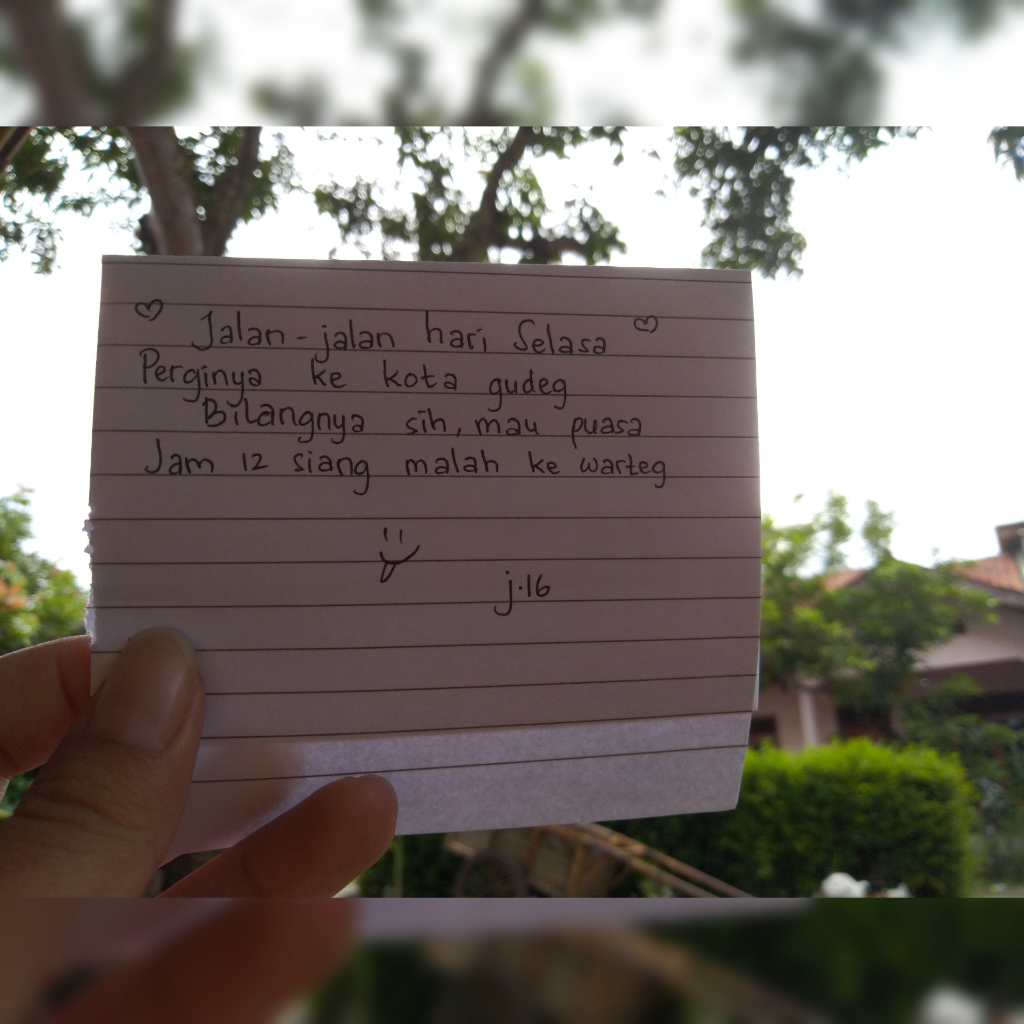 Jalan-jalan hari Selasa
Perginya ke kota gudeg
Bilangnya sih, mau puasa
Jam 12 siang malah ke warteg
j.16